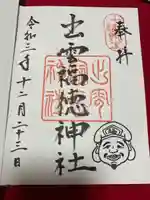 奉拝
出雲福徳神社
令和三年十二月二十三日